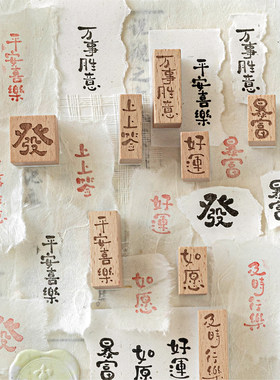 平安喜樂
万事胜意
万事胜意
平安喜樂
万事胜意
暴富
發
上上签
好運
暴富
上上签
發
好運
平安喜樂
如愿
平安喜樂
如愿
及時行樂
及時行樂
發
暴富
如愿
好運